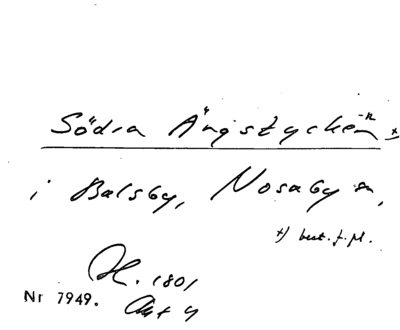 Södra Ängstycken -n x)
i Balsby, Nosaby sn,
x) best. f. pl.
H. 1801
Nr 7949. Akt 4